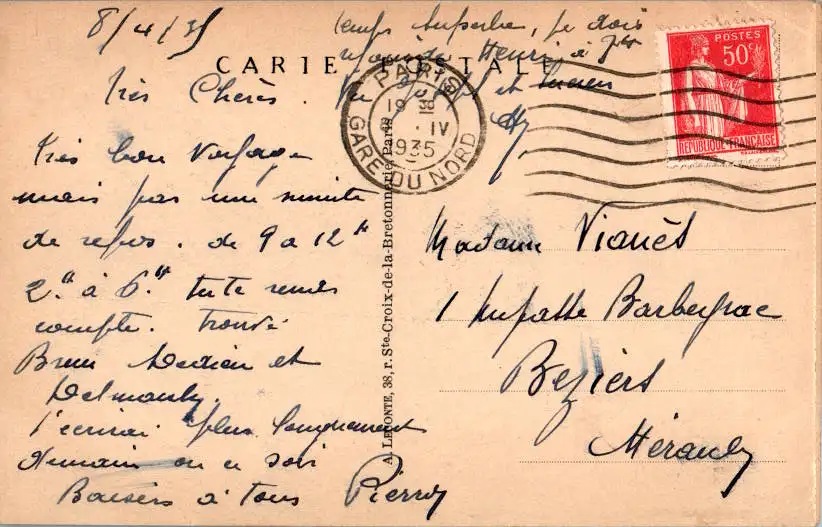 8/4/35
CARTE POSTALE
Très Chères.
Très bon voyage
mais pas une minute
de repos. de 9 à 12h
2h à 6h tu te rends
compte. Trouvé
Brun et
Delmouly.
t'écrirai plus longuement
demain ou ce soir
Baisers à tous Pierre
temps superbe, je dois
Henri à 7h
et Lucien
PARIS
19 18
8 · IV
1935
GARE DU NORD
POSTES
50c
REPUBLIQUE FRANÇAISE
A. LECONTE, 38, r. Ste-Croix-de-la-Bretonnerie, Paris
Madame Vianès
1 Impasse Barbeyrac
Beziers
Hérault